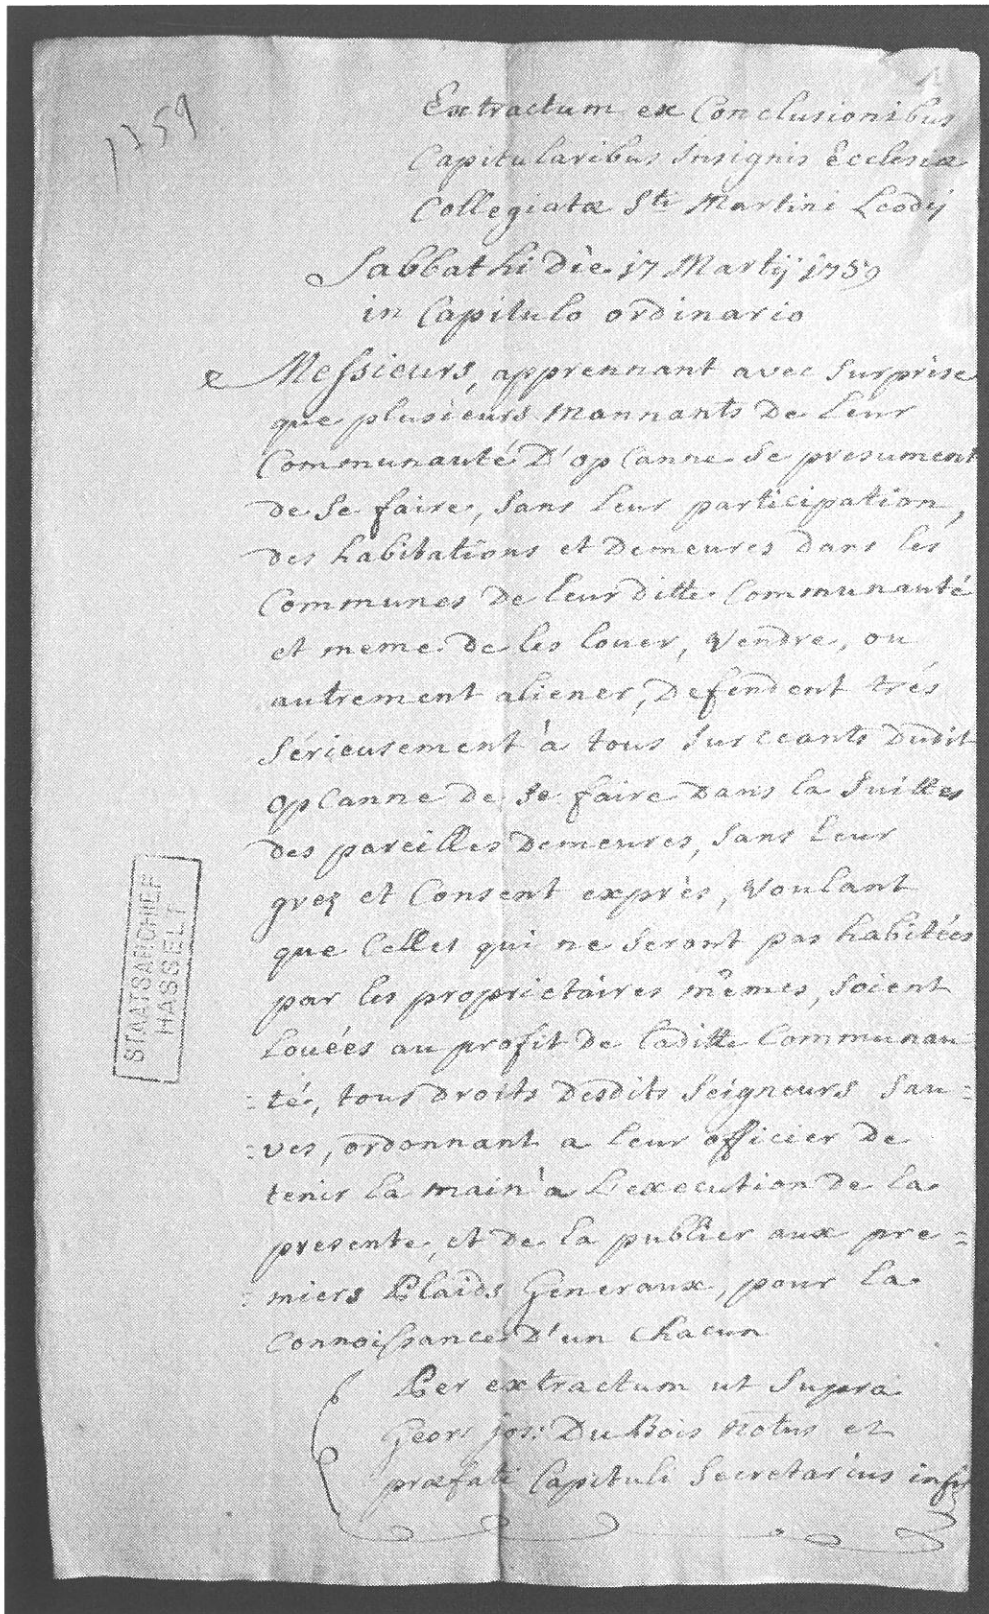 1759
Extractum ex Conclusionibus
Capitularibus Insignis Ecclesiæ
Collegiatæ Sti Martini Leodij
Sabbathi die 17 Martij 1759
in Capitulo ordinario
Messieurs, apprennant avec surprise
que plusieurs mannants de leur
Communauté D'opCanne se presument
de se faire, sans leur participation,
des habitations et demeures dans les
Communes de leur ditte Communauté
et meme de les louer, vendre, ou
autrement aliener, Defendent trés
sérieusement à tous surceants dudit
opCanne de se faire dans la suittes
des pareilles demeures, sans leur
grez et Consent exprès, voulant
que Celles qui ne seront pas habitées
par les proprietaires mêmes, soient
Louées au profit de Laditte Communau
=té, tous droits desdits Seigneurs sau=
=ves, ordonnant a leur officier de
tenir la main à L'execution de la
presente, et de la publier aux pre=
=miers Plaids Generaux, pour la
Connoissances D'un chacun
Per extractum ut supra
Geor: jos: Du Bois Notus et
præfati Capituli Secretarius
STAATSARCHIEF
HASSELT